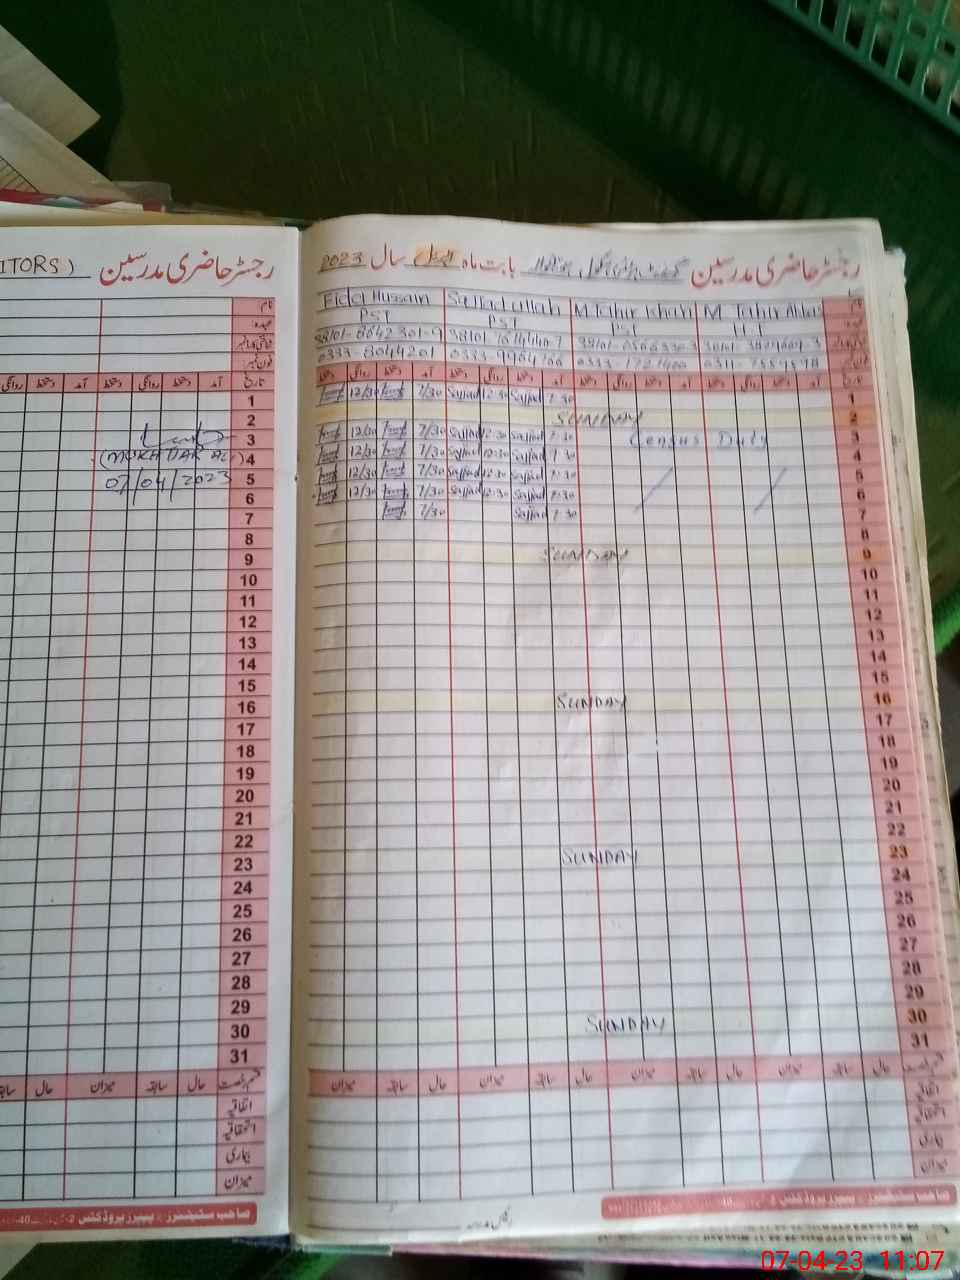 رجسٹر حاضری مدرسین بابت ماہ اپریل سال 2023
نام M Tahir Abbas M Tahir Khan Sajjad ullah Fida Hussain
عہدہ PST PST PST
شناختی کارڈ نمبر
فون نمبر 0333-8044201
تاریخ آمد دستخط روانگی دستخط آمد دستخط روانگی دستخط آمد دستخط روانگی دستخط آمد دستخط روانگی دستخط
1 7:30 Sajjad 12:30 Sajjad 7/30 12/30
2 SUNDAY
3 Census Duty 7:30 Sajjad 12:30 Sajjad 7/30 12/30
4 7:30 Sajjad 12:30 Sajjad 7/30 12/30
5 7:30 Sajjad 12:30 Sajjad 7/30 12/30
6 7:30 Sajjad 12:30 Sajjad 7/30 12/30
7 7:30 Sajjad 7/30
8
9 SUNDAY
10
11
12
13
14
15
16 SUNDAY
17
18
19
20
21
22
23 SUNDAY
24
25
26
27
28
29
30 SUNDAY
31
قسم رخصت حال سابقہ میزان حال سابقہ میزان حال سابقہ میزان حال سابقہ میزان
اتفاقیہ
استحقاقیہ
بیماری
میزان
صاحب سٹیشنرز پیپر پروڈکٹس
رئیس مدرسہ
رجسٹر حاضری مدرسین ITORS)
نام
عہدہ
شناختی کارڈ نمبر
فون نمبر
تاریخ آمد دستخط روانگی دستخط آمد دستخط روانگی
1
2
3
4 (MUKHTAR ALI)
5 07/04/2023
6
7
8
9
10
11
12
13
14
15
16
17
18
19
20
21
22
23
24
25
26
27
28
29
30
31
قسم رخصت حال سابقہ میزان حال سابقہ
اتفاقیہ
استحقاقیہ
بیماری
میزان
صاحب سٹیشنرز پیپر پروڈکٹس
07-04-23 11:07